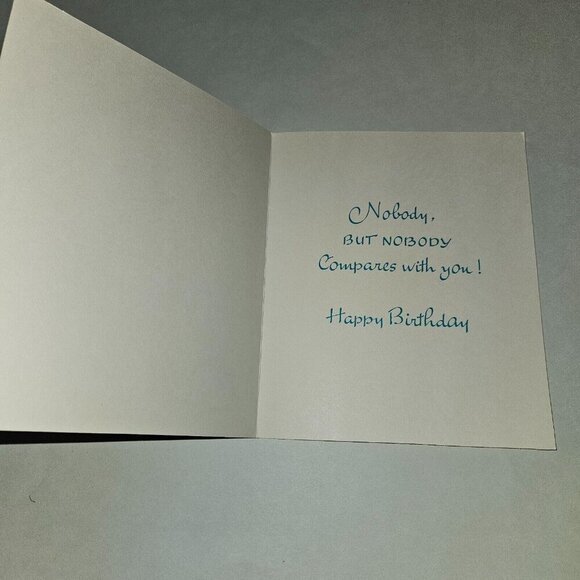 Nobody,
BUT NOBODY
Compares with you!
Happy Birthday